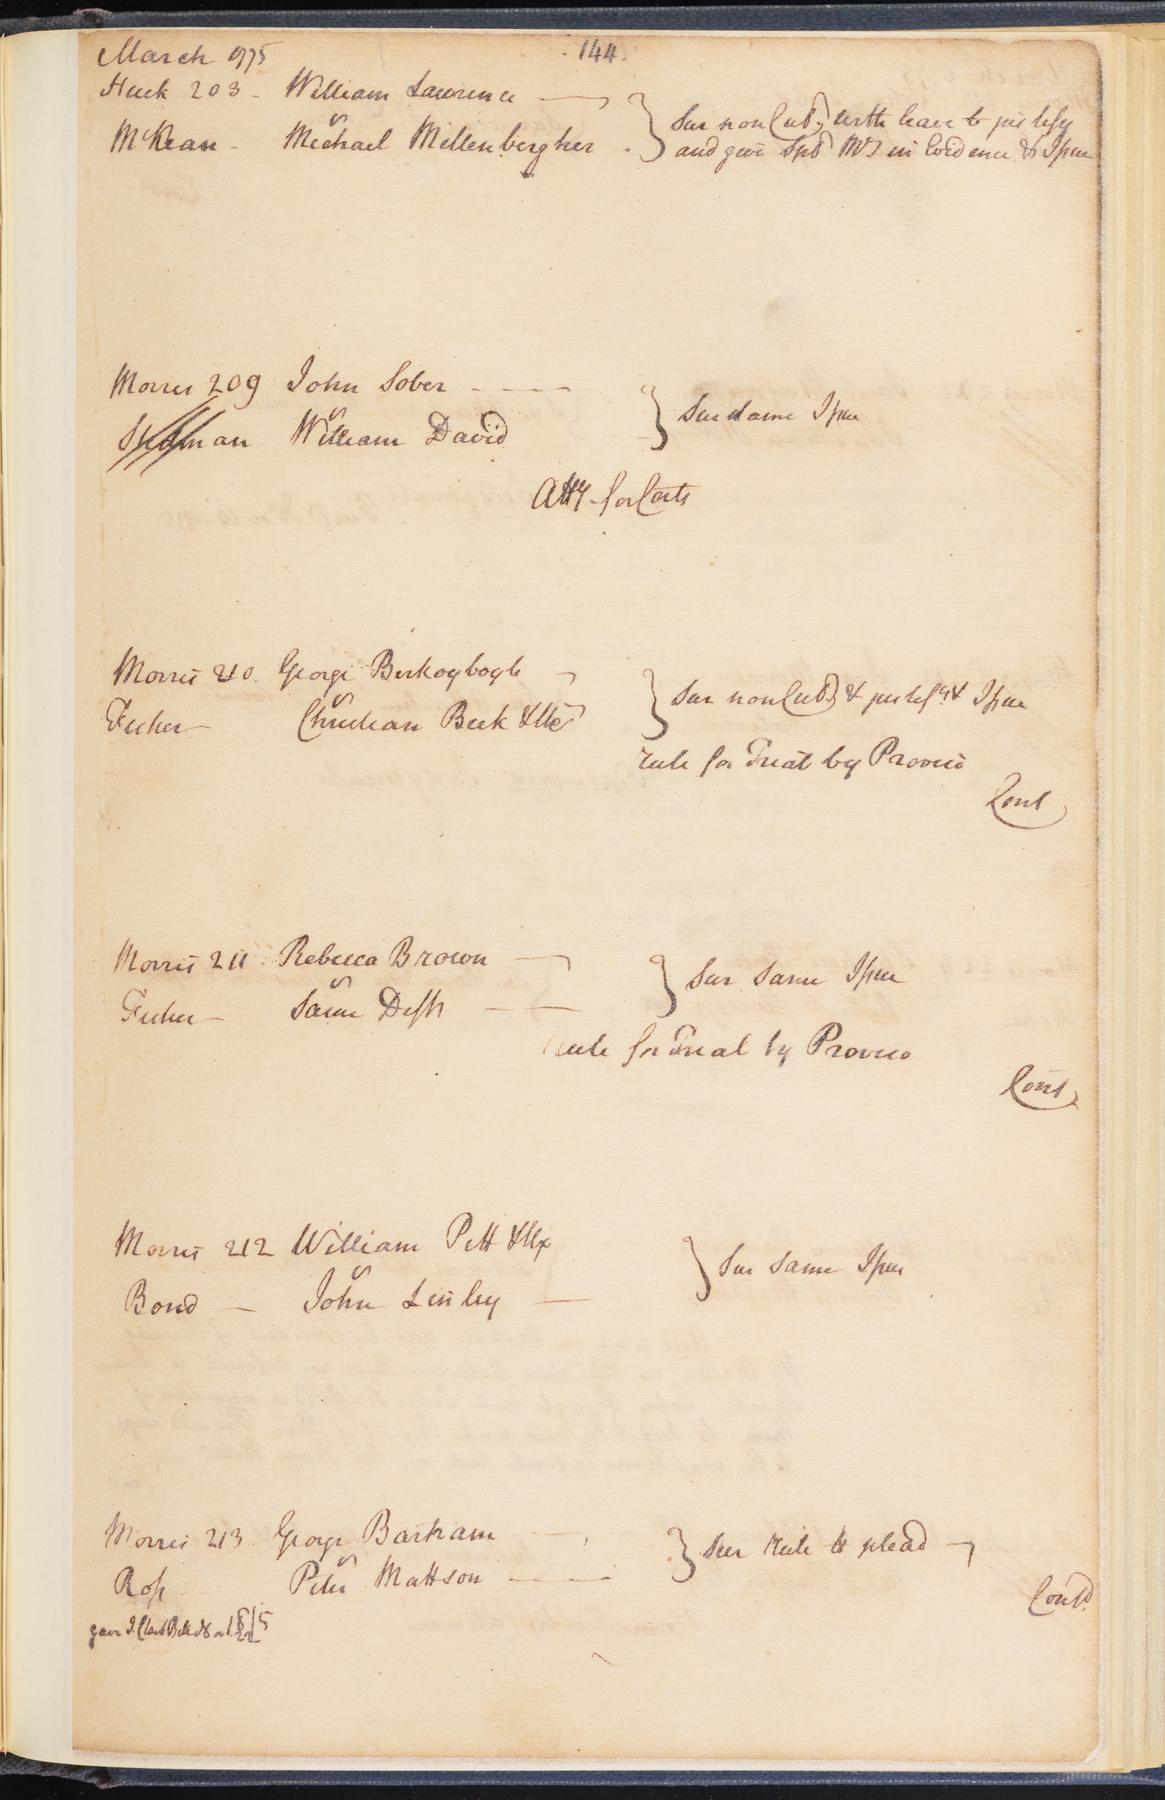 March 1775
144.
Huck 203 - William Lawrence
McKean - v Michael Millenbergher
Sur non Cul with leave to justify
and give in Evidence & Issue
Morris 209 John Sober
v William David
Sur same Issue
Atty for Costs
Morris 210. George
Fisher v Christian Beek & Ux
Sur non Cul & Issue
rule for Trial by Proviso
Cont
Morris 211 Rebecca Brown
Fisher v Same Deft
Sur same Issue
rule for Trial by Proviso
Cont
Morris 212 William Pitt & Ux
Bond - v John Linley
Sur same Issue
Morris 213. George Bartram
Ross v Peter Mattson
Sur rule to plead
Contd